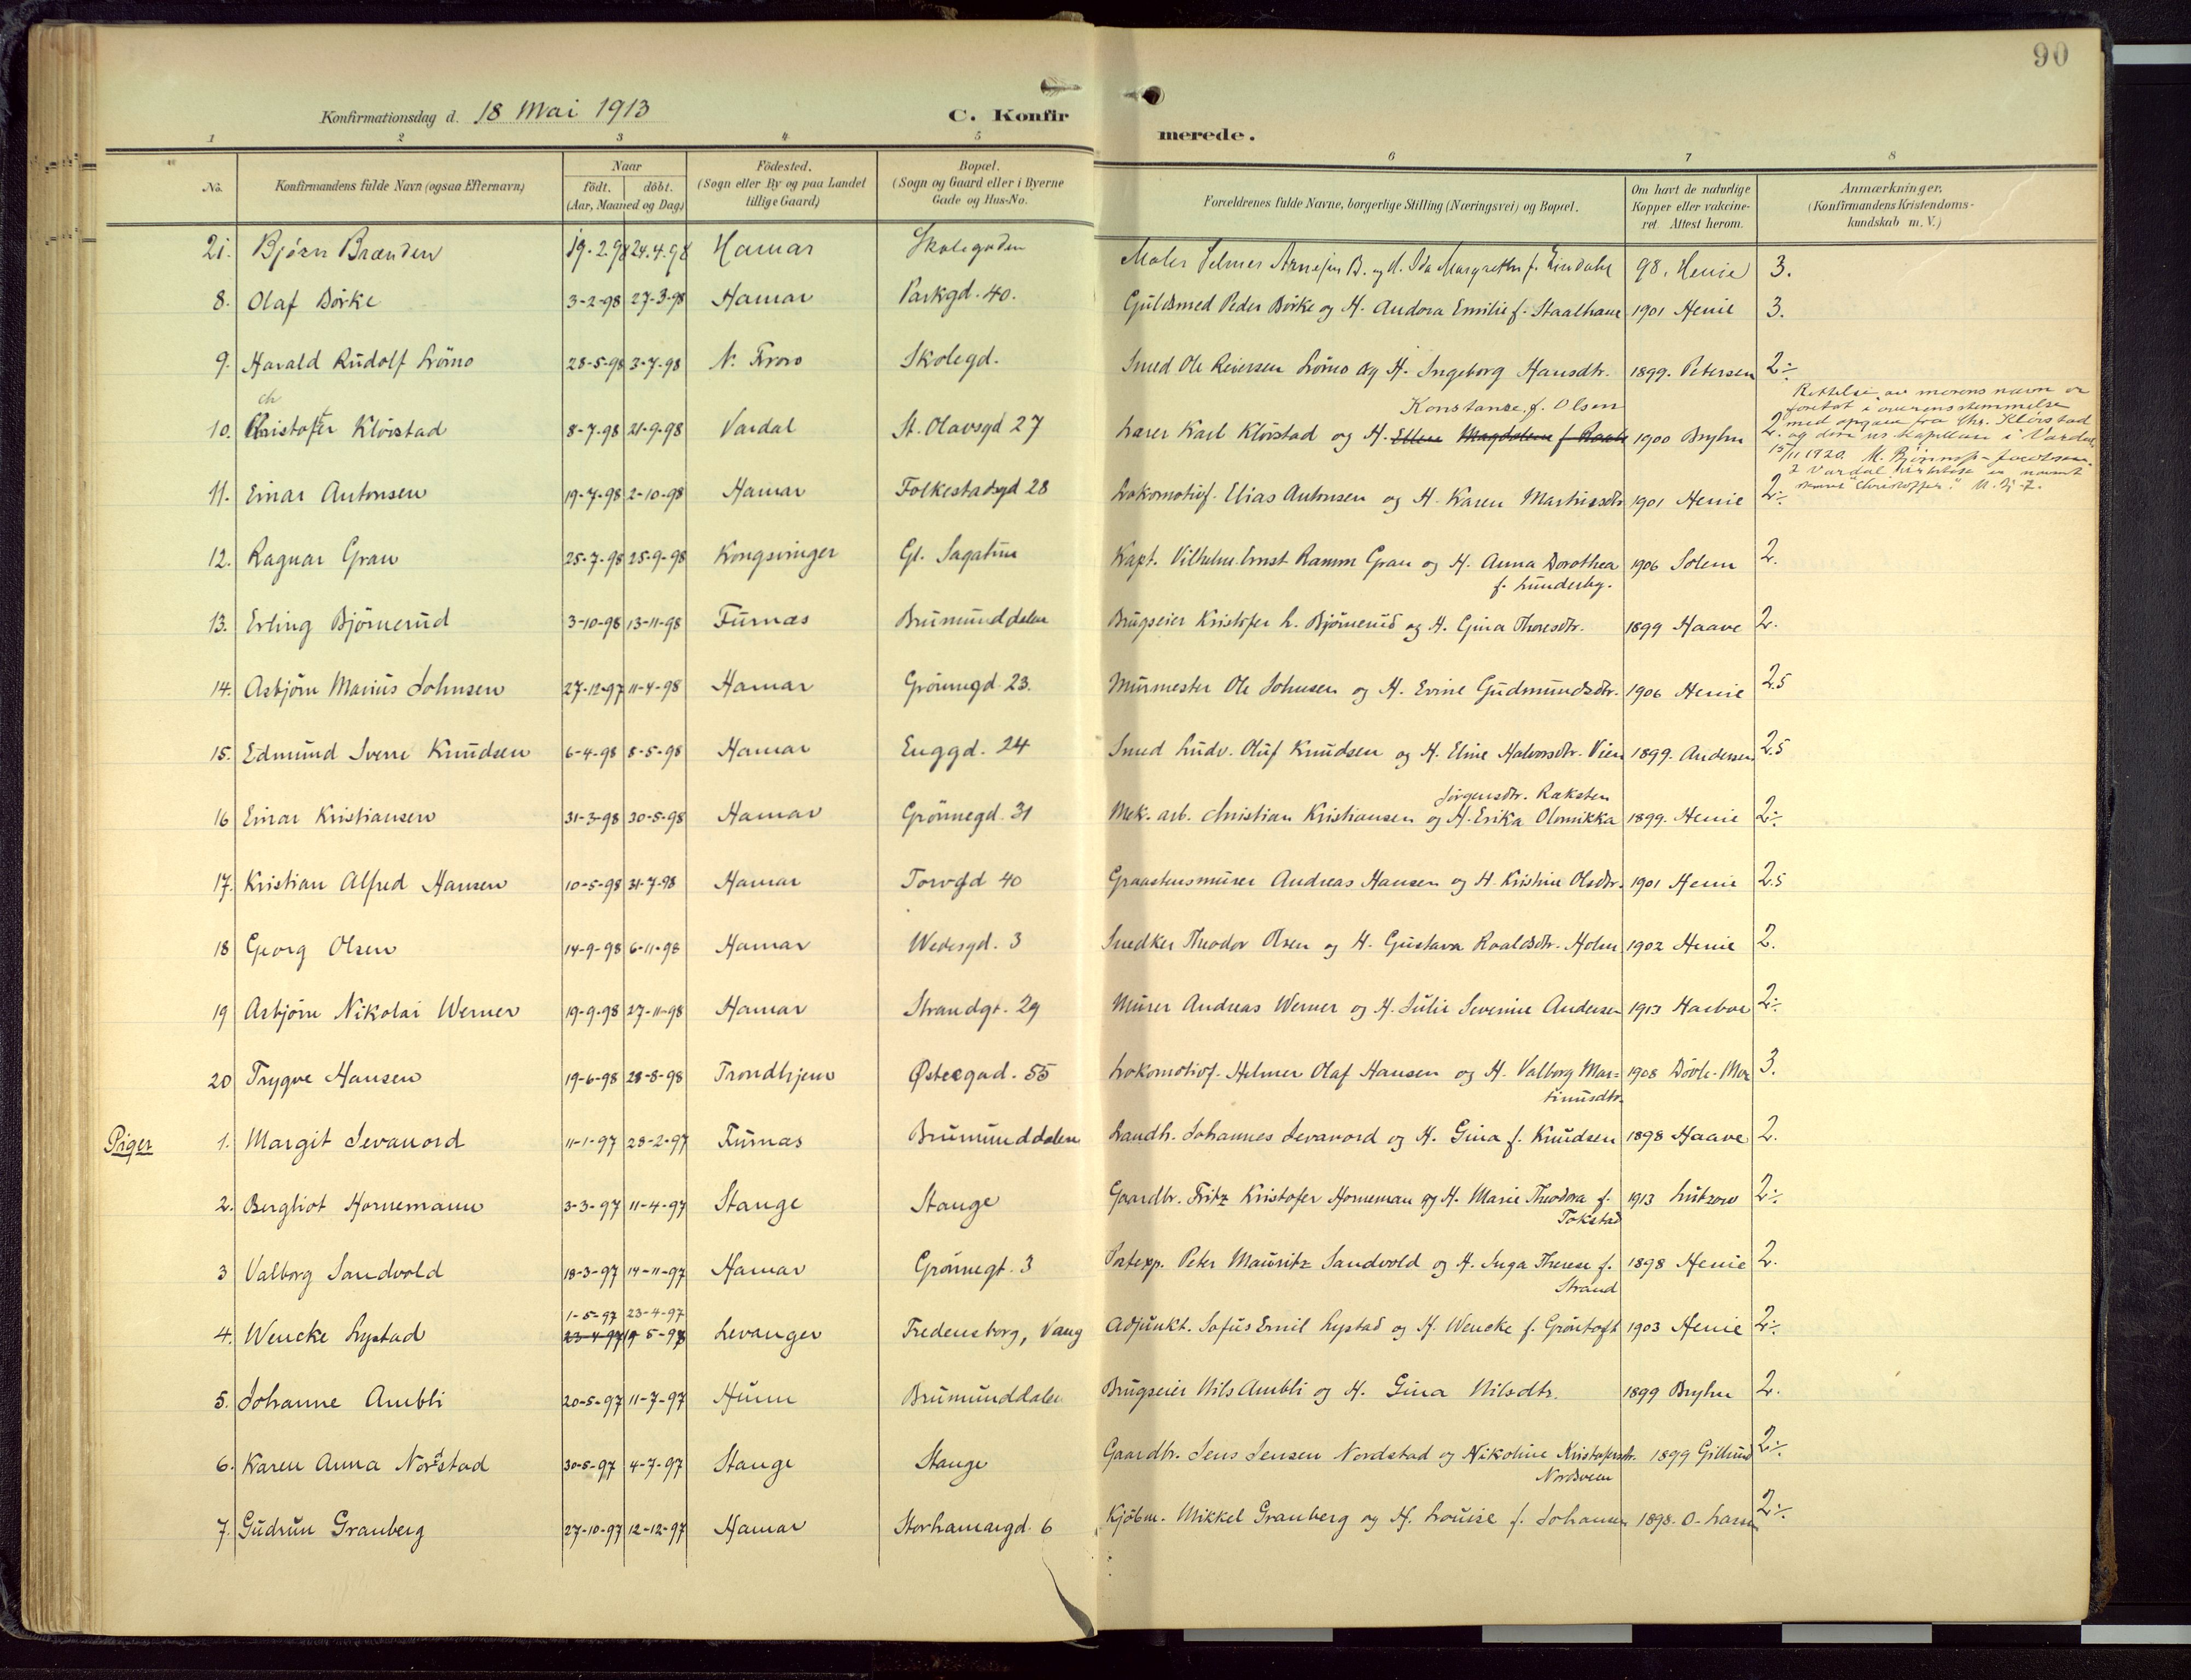 90
Konfirmationsdag d. 18 Mai 1913
C. Konfirmerede.
1 2 3 4 5 6 7 8
No.
Konfirmandens fulde Navn (ogsaa Efternavn)
Naar
födt. döbt.
(Aar, Maaned og Dag)
Födested.
(Sogn eller By og paa Landet
tillige Gaard)
Bopæl.
(Sogn og Gaard eller i Byerne
Gade og Hus-No.
Forældrenes fulde Navne, borgerlige Stilling (Næringsvei) og Bopæl.
Om havt de naturlige
Kopper eller vakcine-
ret. Attest herom.
Anmærkninger.
(Konfirmandens Kristendoms-
kundskab m. V.)
21. Bjørn Brænden 19-2-98 24.4.98 Hamar Skolegaden Maler Selmer B. og H. Ida Margrethe f. 98. Henie 3.
8. Olaf Börke 3-2-98 27-3-98 Hamar Parkgd. 40. Guldsmed Peder Börke og H. Andora Emilie f. Staalhane 1901 Henie 3.
9. Harald Rudolf Lömo 28-5-98 3-7-98 N. Skolegd. Smed Ole Reiersen Lömo og H. Ingeborg Hansdtr. 1899. Petersen 2÷
ch f Konstanse f. Olsen
10. Kristofer Klövstad 8-7-98 21-9-98 Vardal St. Olavsgd 27 Lærer Karl Klövstad og H. Ellen Magdalene f. 1900 Bryhn 2.
Rettelse av morens navn er
foretat i overensstemmelse
med opgave fra Chr. Klövstad
og den res. kapellan i Vardal
15/11 1920.
I Vardal kirkebok er navnet
"Christoffer."
11. Einar Antonsen 19-7-98 2-10-98 Hamar Folkestadsgd 28 Lokomotivf. Elias Antonsen og H. Karen Martinsdtr 1901 Henie 2÷
12. Ragnar Gran 25-7-98 25-9-98 Kongsvinger Gl. Sagatun Kapt. Vilhelm Ernst Ramm Gran og H. Anna Dorothea 1906 Solem 2.
f. Lunderby.
13. Erling Björnerud 3-10-98 13-11-98 Furnæs Brumunddalen Brugseier Kristofer L. Björnerud og H. Gina Thoresdtr. 1899 Haave 2.
14. Asbjörn Marius Johnsen 27-12-97 11-4-98 Hamar Grönnegd 23. Murmester Ole Johnsen og H. Evine Gudmundsdtr. 1906 Henie 2.5
15. Edmund Sverre Knudsen 6-4-98 8-5-98 Hamar Enggd. 24 Smed Ludv. Oluf Knudsen og H. Eline Halvorsdtr. Vien 1899. Andersen 2.5
Jörgensdtr. Raksten
16 Einar Kristiansen 31-3-98 30-5-98 Hamar Grönnegd. 31 Mek. arb. Christian Kristiansen og H. Erika Olomikka 1899. Henie 2÷
17. Kristian Alfred Hansen 10-5-98 31-7-98 Hamar Torvgd 40 Graastensmurer Andreas Hansen og H. Kristine Olsdtr. 1901 Henie 2.5
18 Georg Olsen 14-9-98 6-11-98 Hamar Wedesgd. 3 Snedker Theodor Olsen og H. Gustava Roaldsdtr. Holm 1902 Henie 2.
19 Asbjörn Nikolai Werner 19-9-98 27-11-98 Hamar Strandgt. 29 Murer Andreas Werner og H. Julie Severine Andersen 1913 Harboe 2÷
20 Trygve Hansen 19-6-98 28-8-98 Trondhjem Østregad. 55 Lokomotivf. Helmer Olaf Hansen og H. Valborg Mar= 1908 3.
tinusdtr.
Piger 1. Margit Sevanord 11-1-97 28-2-97 Furnæs Brumunddalen Landh. Johannes Sevanord og H. Gina f. Knudsen 1898 Haave 2.
2. Bergliot Hornemann 3-3-97 11-4-97 Stange Stange Gaardbr. Fritz Kristofer Horneman og H. Marie Theodora f. 1913 Lützow 2÷
Tokstad
3 Valborg Sandvold 18-3-97 14-11-97 Hamar Grönnegt. 3 Postexp. Peter Mauritz Sandvold og H. Inga Therese f. 1898 Henie 2.
Strand
1-5-97 23-4-97
4. Wencke Lystad 23-4-97 5-97 Levanger Fredensborg, Vang Adjunkt. Sofus Emil Lystad og H. Wencke f. Gröntoft 1903 Henie 2÷
5. Johanne Ambli 20-5-97 11-7-97 Hunn Brumunddalen Brugseier Nils Ambli og H. Gina Nilsdtr. 1899 Bryhn 2.
6. Karen Anna Nordstad 30-5-97 4-7-97 Stange Stange Gaardbr. Jens Jensen Nordstad og Nikoline Kristofersdtr. 1899 Gillund 2÷
Nordsveen
7. Gudrun Granberg 27-10-97 12-12-97 Hamar Storhamargd. 6 Kjöbm. Mikkel Granberg og H. Louise f. Johansen 1898. O. Larsen 2÷